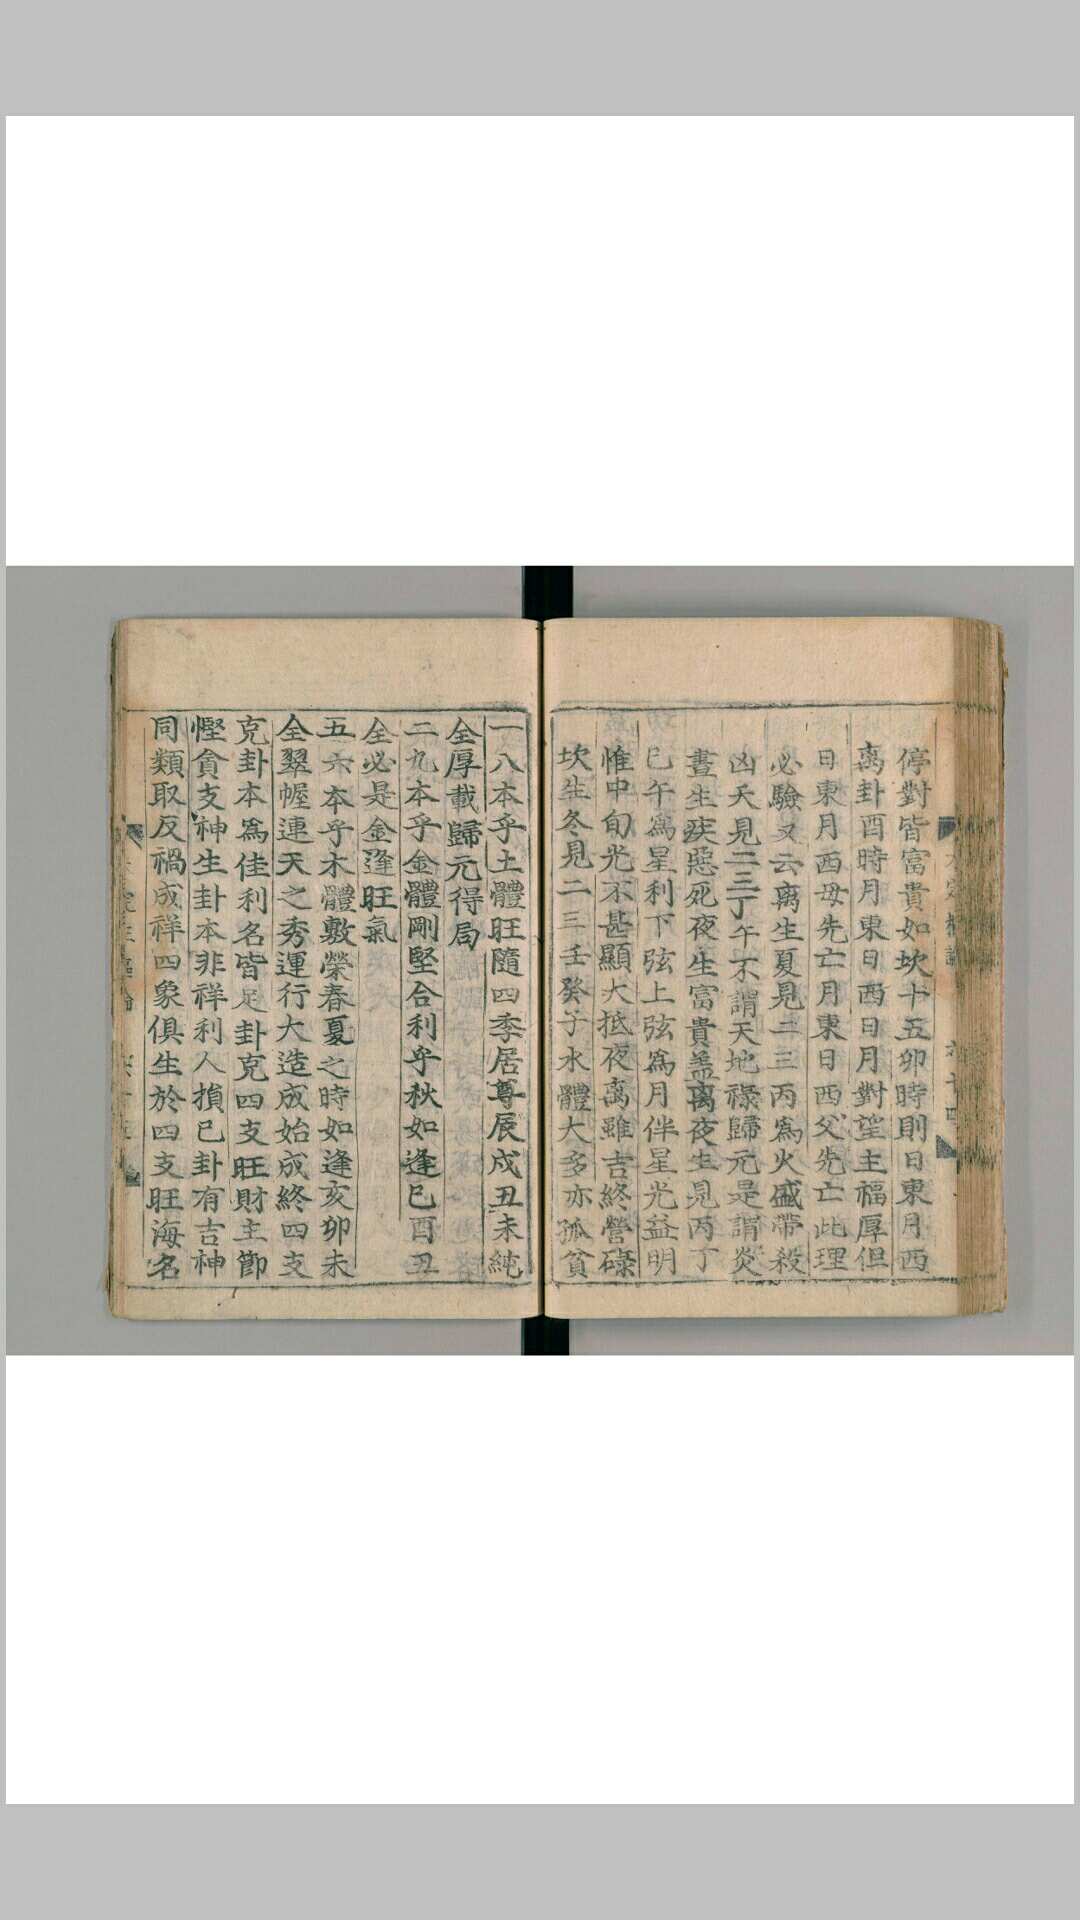 停對皆富貴如坎十五卯時則日東月西
离卦酉時月東日西日月對望主福厚但
日東月西母先亡月東日西父先亡此理
必驗又云离生夏見二三丙為火盛帶殺
凶夭見二三丁午不謂天地祿歸元是謂炎
晝生疾惡死夜生富貴盖离夜生見丙丁
巳午為星利下弦上弦為月伴星光益明
惟中旬光不甚顯大抵夜离雖吉終營碌
坎生冬見二三壬癸子水體大多亦孤貧
一八本乎土體旺隨四季居尊辰戍丑未純
全厚載歸元得局
二九本乎金體剛堅合利乎秋如逢巳酉丑
全必是金逢旺氣
五六本乎木體敷榮春夏之時如逢亥卯未
全翠幄連天之秀運行大造成始成終四支
克卦本為佳利名皆足卦克四支旺財主節
慳貪支神生卦本非祥利人損已卦有吉神
同類取反禍成祥四象俱生於四支旺海名